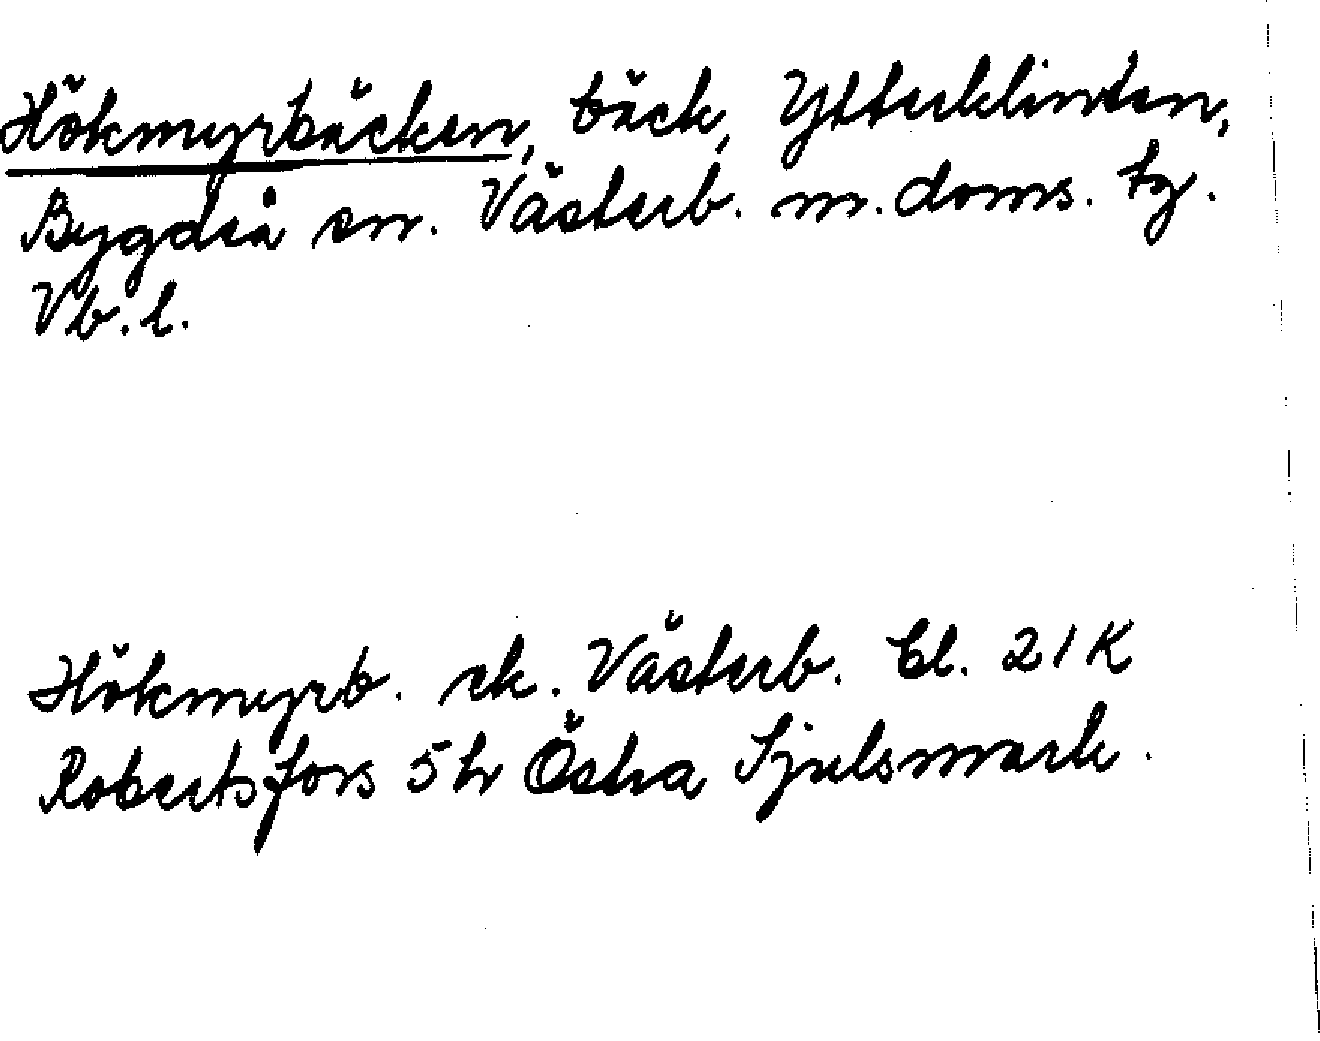 Hökmyrbäcken, bäck, Ytterklinten,
Bygdeå sn. Västerb. m. doms. tg.
Vb. l.
Hökmyrb. ek. Västerb. bl. 21K
Robertsfors 5h Östra Sjulsmark.